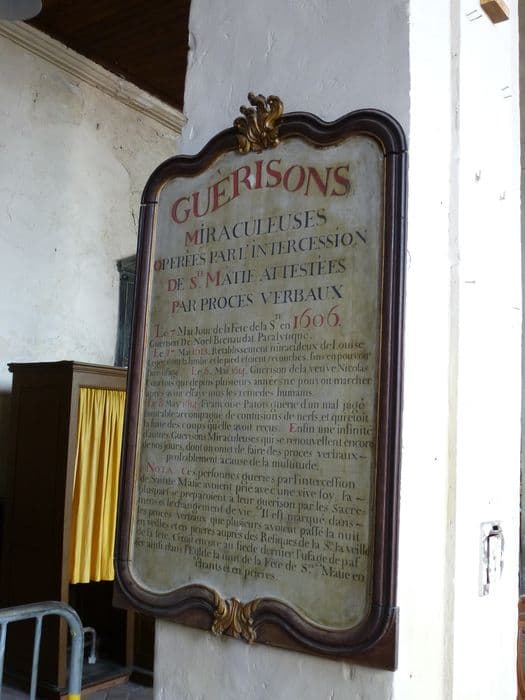 GUÈRISONS
MIRACULEUSES
OPEREES PAR L'INTERCESSION
DE S.TE MATIE ATTESTÉES
PAR PROCES VERBAUX
Le 7 Mai Jour de la Fete de la S.te en 1606.
Guérison De Noel Brenaudat Paralytique.
Le 7 Mai 1613. Rétablissement miraculeux de Louise
dont la jambe et le pied etoient recourbés, sans en pouvoir
Le 6. Mai 1614. Guérison de la veuve Nicolas
qui depuis plusieurs années ne pouvoit marcher
après avoir essayé tous les remedes humains.
Le 8 May 1614 Francoise Patois guérie d'un mal jugé
incurable accompagné de contusions de nerfs, et qui étoit
la suite des coups qu'elle avoit reçus. Enfin une infinité
d'autres Guérisons Miraculeuses qui se renouvellent encore
de nos jours, dont on omet de faire des procès verbaux
probablement a cause de la multitude.
NOTA. Ces personnes gueries par l'intercession
de Sainte Matie avoient prié avec une vive foy, la
pluspart se préparoient a leur guerison par les Sacre-
mens et le changement de vie. Il est marqué dans
les procès verbaux que plusieurs avoient passé la nuit
en veilles et en prieres auprès des Reliques de la S.te la veille
de la fête. C'étoit encore au siecle dernier l'usage de pas-
ser ainsi dans l'Eglise la nuit de la Fete de S.te Matie en
chants et en prieres.